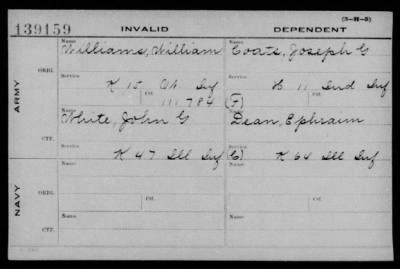 (3-H-5)
139159 INVALID DEPENDENT
Name Name
Williams, William Coats, Joseph G
ARMY
ORIG. Service Ctf. Service Ctf.
K 15 Inf H 11 Ind Inf
111784 (F)
Name Name
White, John G Dean, Ephraim
CTF. Service Ctf. Service Ctf.
K 47 Ill Inf (C) K 64 Ill Inf
Name Name
NAVY
ORIG. Service Ctf. Service Ctf.
Name Name
CTF. Service Ctf. Service Ctf.